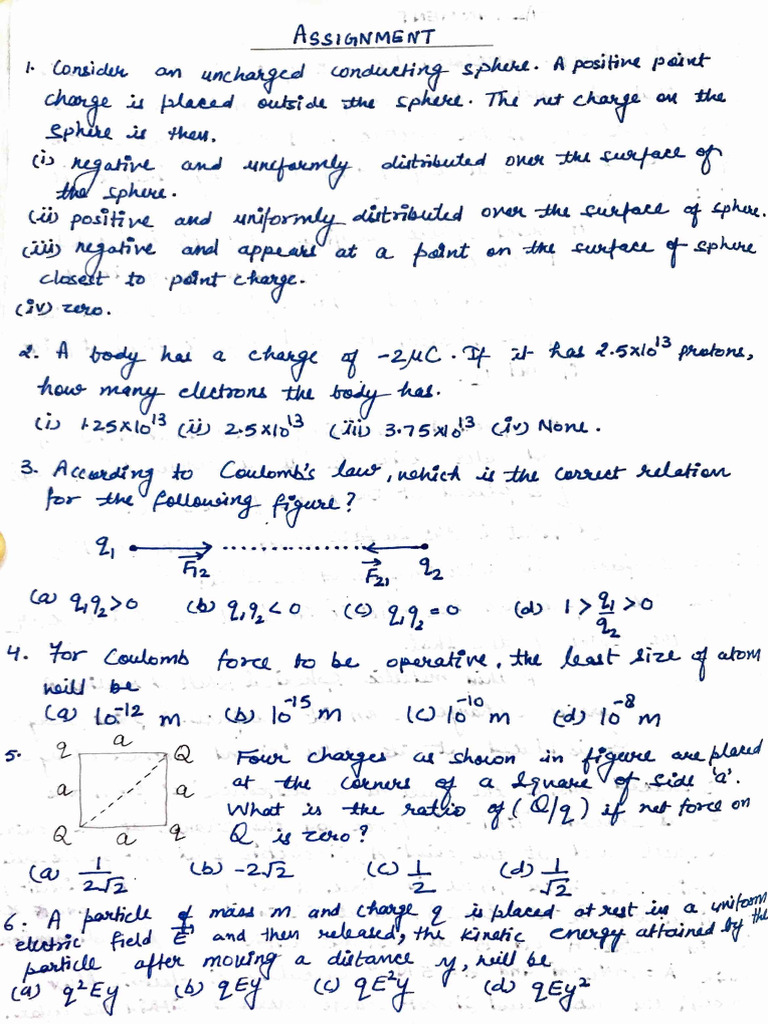 ASSIGNMENT
1. Consider an uncharged conducting sphere. A positive point
charge is placed outside the sphere. The net charge on the
sphere is then,
(i) negative and uniformly distributed over the surface of
the sphere.
(ii) positive and uniformly distributed over the surface of sphere.
(iii) negative and appears at a point on the surface of sphere
closest to point charge.
(iv) zero.
2. A body has a charge of -2μC. If it has 2.5×10¹³ protons,
how many electrons the body has.
(i) 1.25×10¹³ (ii) 2.5×10¹³ (iii) 3.75×10¹³ (iv) None.
3. According to Coulomb's law, which is the correct relation
for the following figure?
q₁ F⃗₁₂ F⃗₂₁ q₂
(a) q₁q₂>0 (b) q₁q₂<0 (c) q₁q₂=0 (d) 1>q₁/q₂>0
4. For Coulomb force to be operative, the least size of atom
will be
(a) 10⁻¹² m (b) 10⁻¹⁵ m (c) 10⁻¹⁰ m (d) 10⁻⁸ m
5. q a Q
a a
Q a q
Four charges as shown in figure are placed
at the corners of a square of side 'a'.
What is the ratio of (Q/q) if net force on
Q is zero?
(a) 1/2√2 (b) -2√2 (c) 1/2 (d) 1/√2
6. A particle of mass m and charge q is placed at rest in a uniform
electric field E and then released, the kinetic energy attained by the
particle after moving a distance y, will be
(a) q²Ey (b) qEy (c) qE²y (d) qEy²